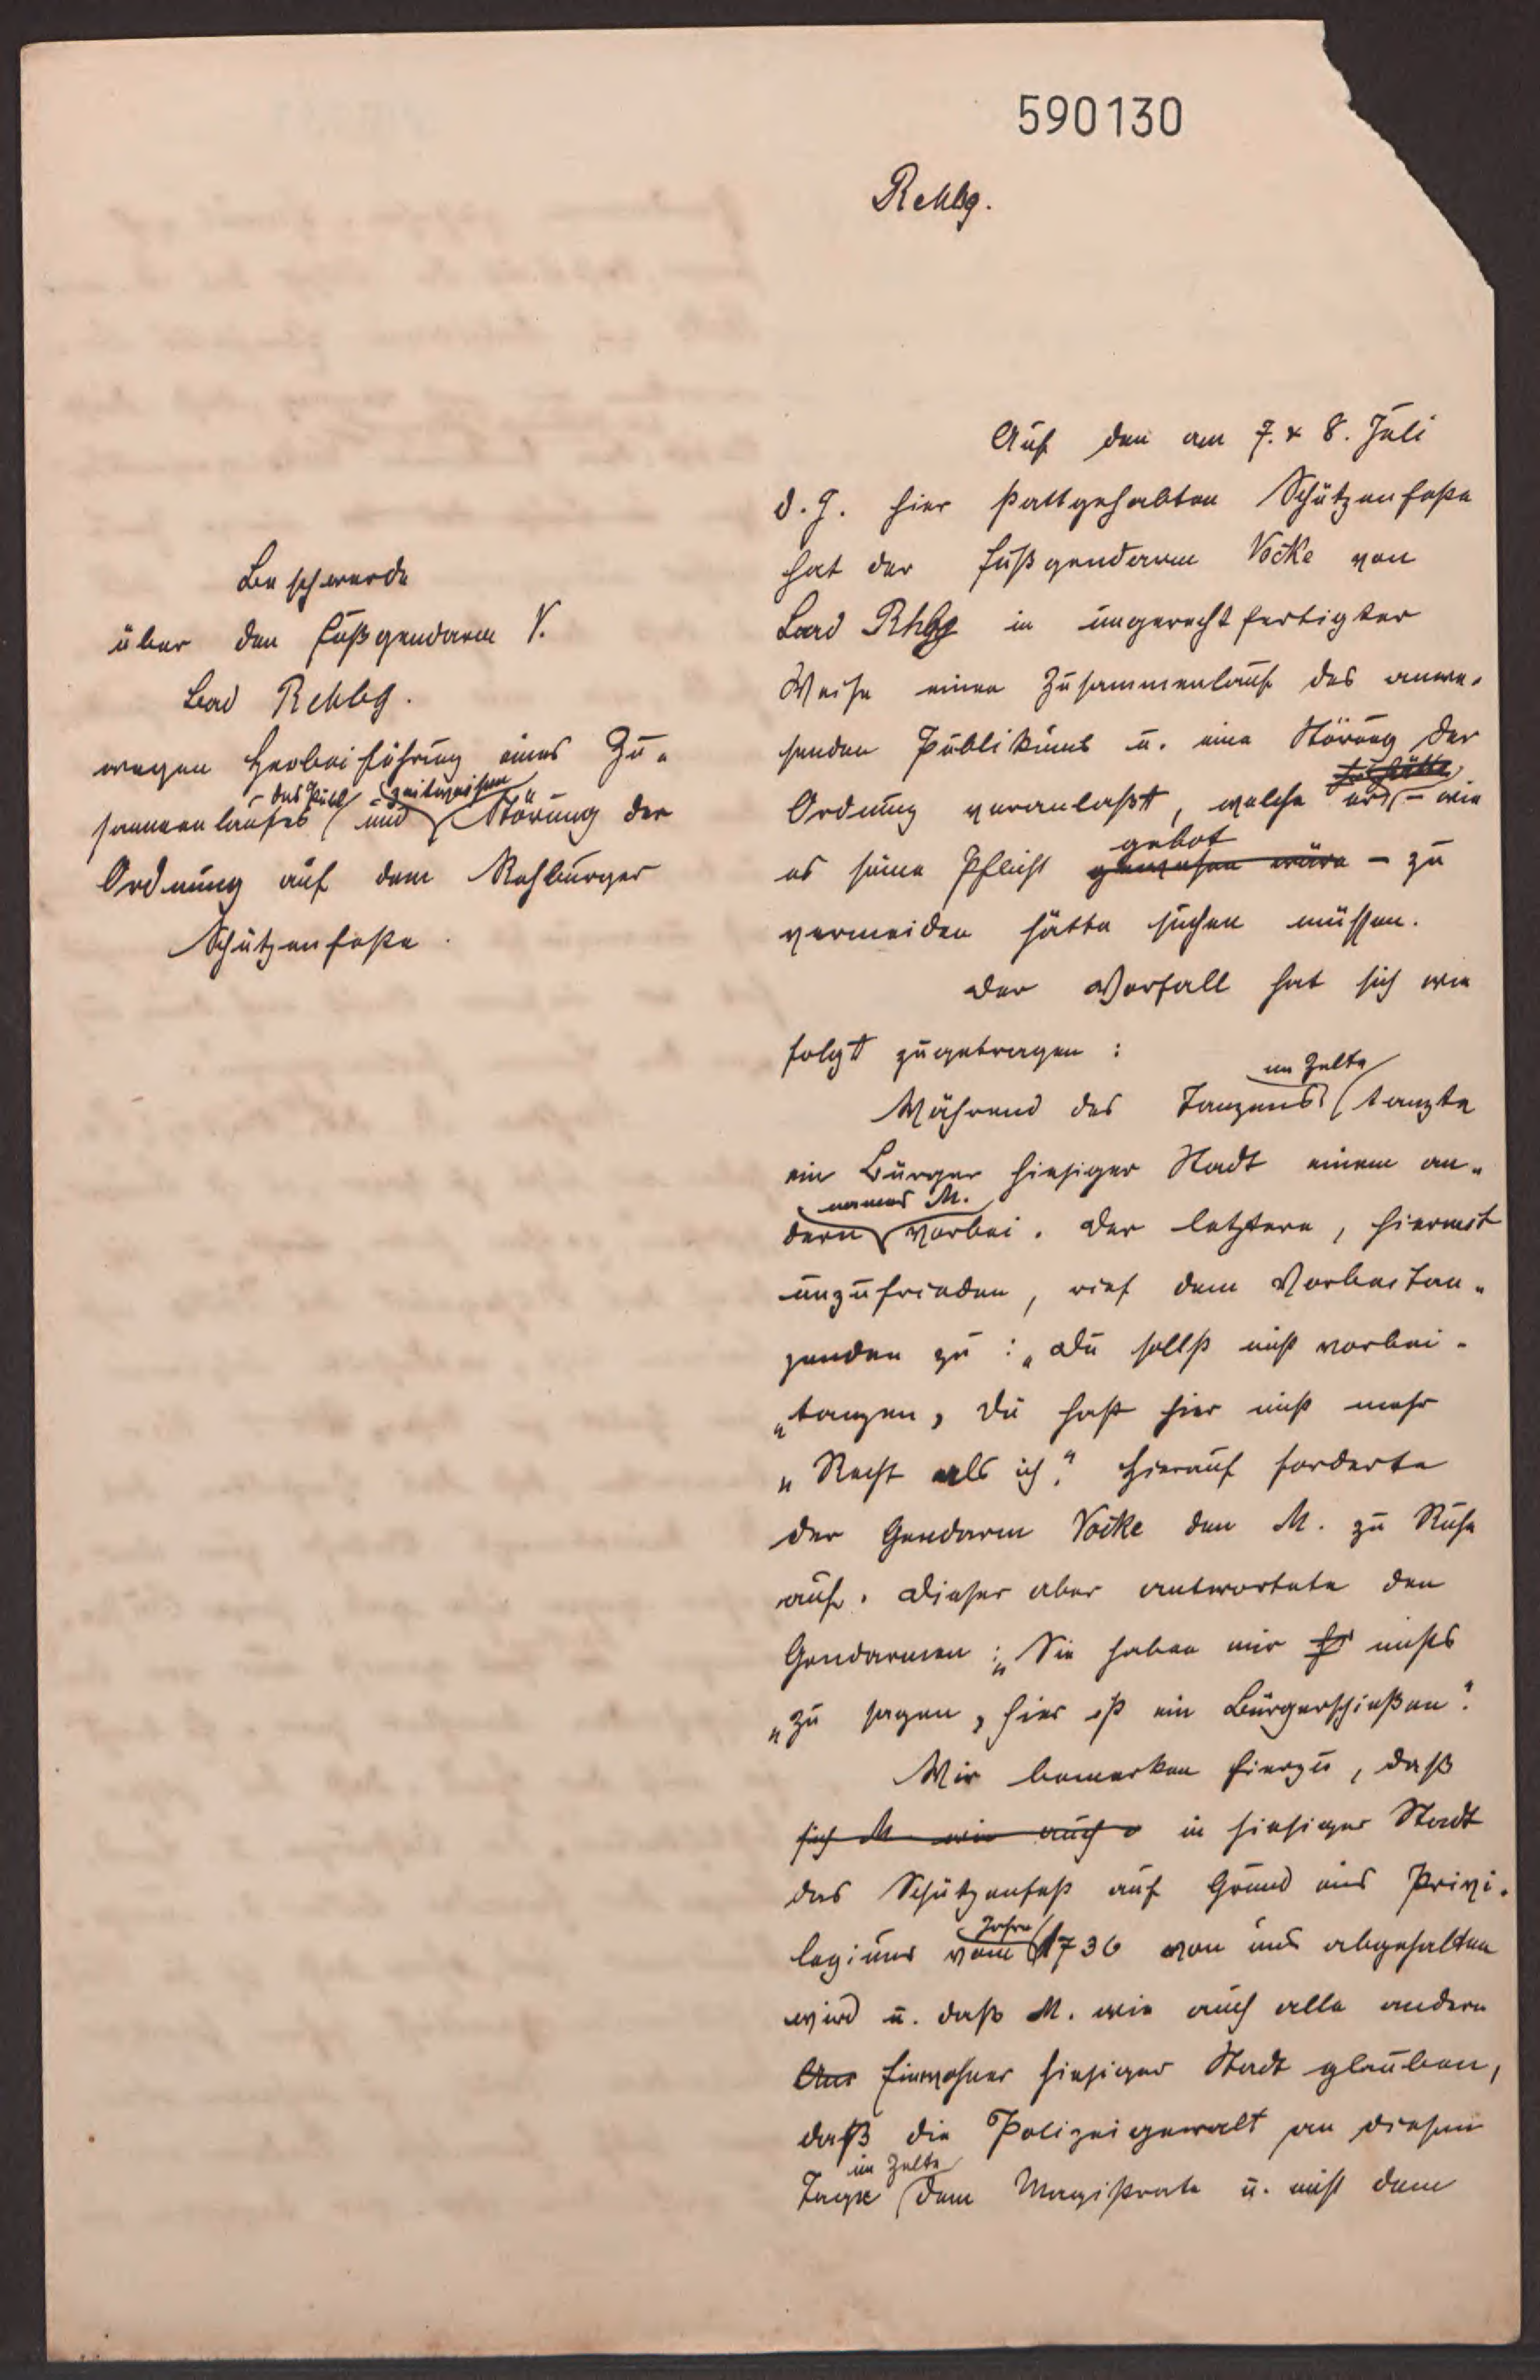 590130
Rehbg.
Beschwerde
über den Fußgendarm V.
Bad Rehbg.
wegen Herbeiführung eines Zu-
- des Publ. - zeitweisen
sammenlaufes und Störung der
Ordnung auf dem Rehburger
Schützenfeste.
Auf den am 7. & 8. Juli
d. J. hier stattgehabten Schützenfeste
hat der Fußgendarm Vocke von
Bad Rhbg in ungerechtfertigter
Weise einen Zusammenlauf des anwe-
senden Publikums u. eine Störung der
Ordnung veranlaßt, welche er - wie
gebot
es seine Pflicht gewesen wäre - zu
vermeiden hätte suchen müssen.
Der Vorfall hat sich wie
folgt zugetragen:
im Zelte
Während des Tanzens tanzte
ein Bürger hiesiger Stadt einem an-
namens M.
dern vorbei. Der letztere, hiermit
unzufrieden, rief dem Vorbeitan-
zenden zu: „Du sollst nicht vorbei-
„tanzen, Du hast hier nicht mehr
„Recht als ich." Hierauf forderte
der Gendarm Vocke den M. zu Ruhe
auf. Dieser aber antwortete den
Gendarmen: „Sie haben mir hi nichts
„zu sagen, hier ist ein Bürgerschießen".
Wir bemerken hierzu, daß
sich M wie auch in hiesiger Stadt
das Schützenfest auf Grund eines Privi-
Jahre
legiums vom 1736 von uns abgehalten
wird u. daß M. wie auch alle andern
Einwohner hiesiger Stadt glauben,
daß die Polizeigewalt an diesem
im Zelte
Tage dem Magistrate u. nicht dem